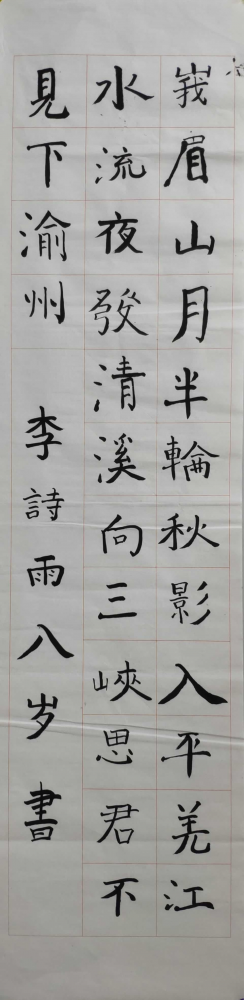 峩眉山月半輪秋影入平羌江
水流夜發清溪向三峽思君不
見下渝州 李詩雨八岁書